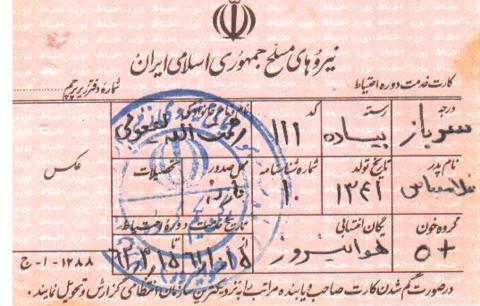 نیروهای مسلح جمهوری اسلامی ایران
کارت خدمت دوره احتیاط
شماره دفتر زیر پرچم
درجه رسته کد
سرباز پیاده ۱۱۱
نام پدر تاریخ تولد شماره شناسنامه محل صدور تحصیلات عکس
غلامعباس ۱۳۴۱ ۱۰
گروه خون یگان انتسابی تاریخ خدمت دوره احتیاط
O+ هوانیروز از تا
۱۲۸۸-۱-ج
درصورت گم شدن کارت صاحب و یابنده مراتب را به نزدیکترین سازمان انتظامی گزارش و تحویل نمایند.